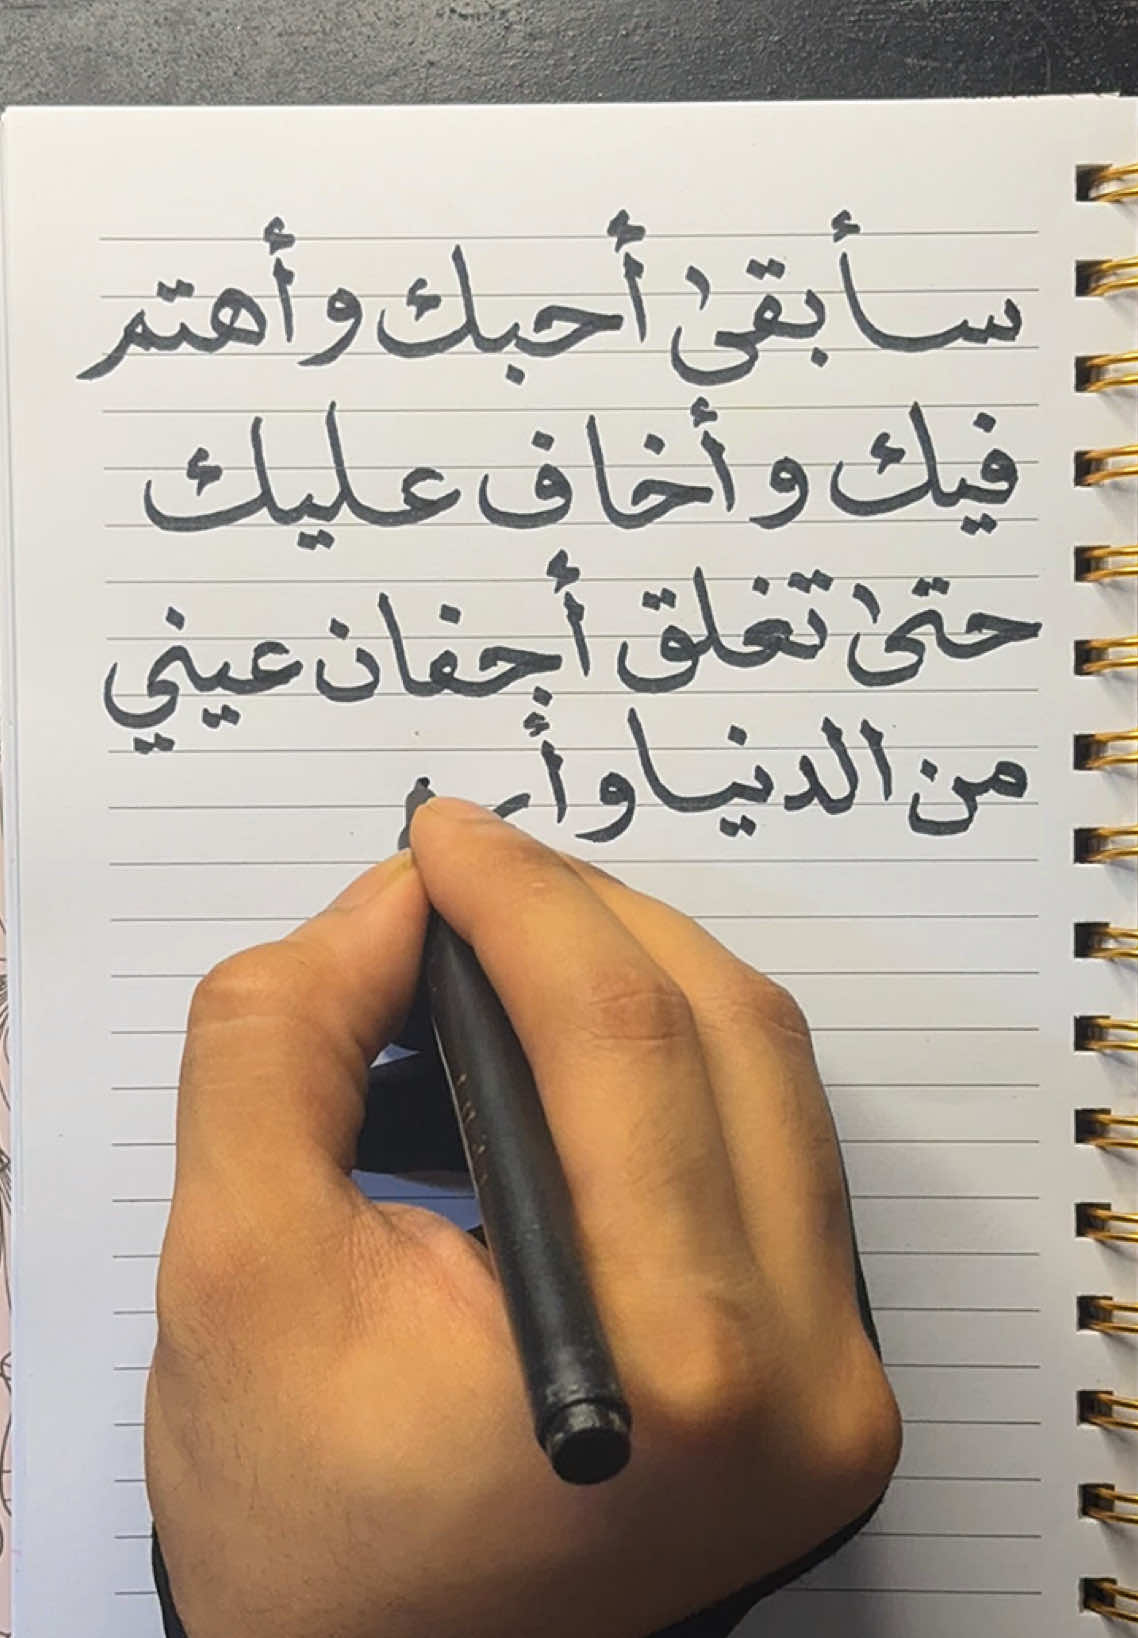 سأبقىٰ أحبك وأهتم
فيك وأخاف عليك
حتىٰ تغلق أجفان عيني
من الدنيا